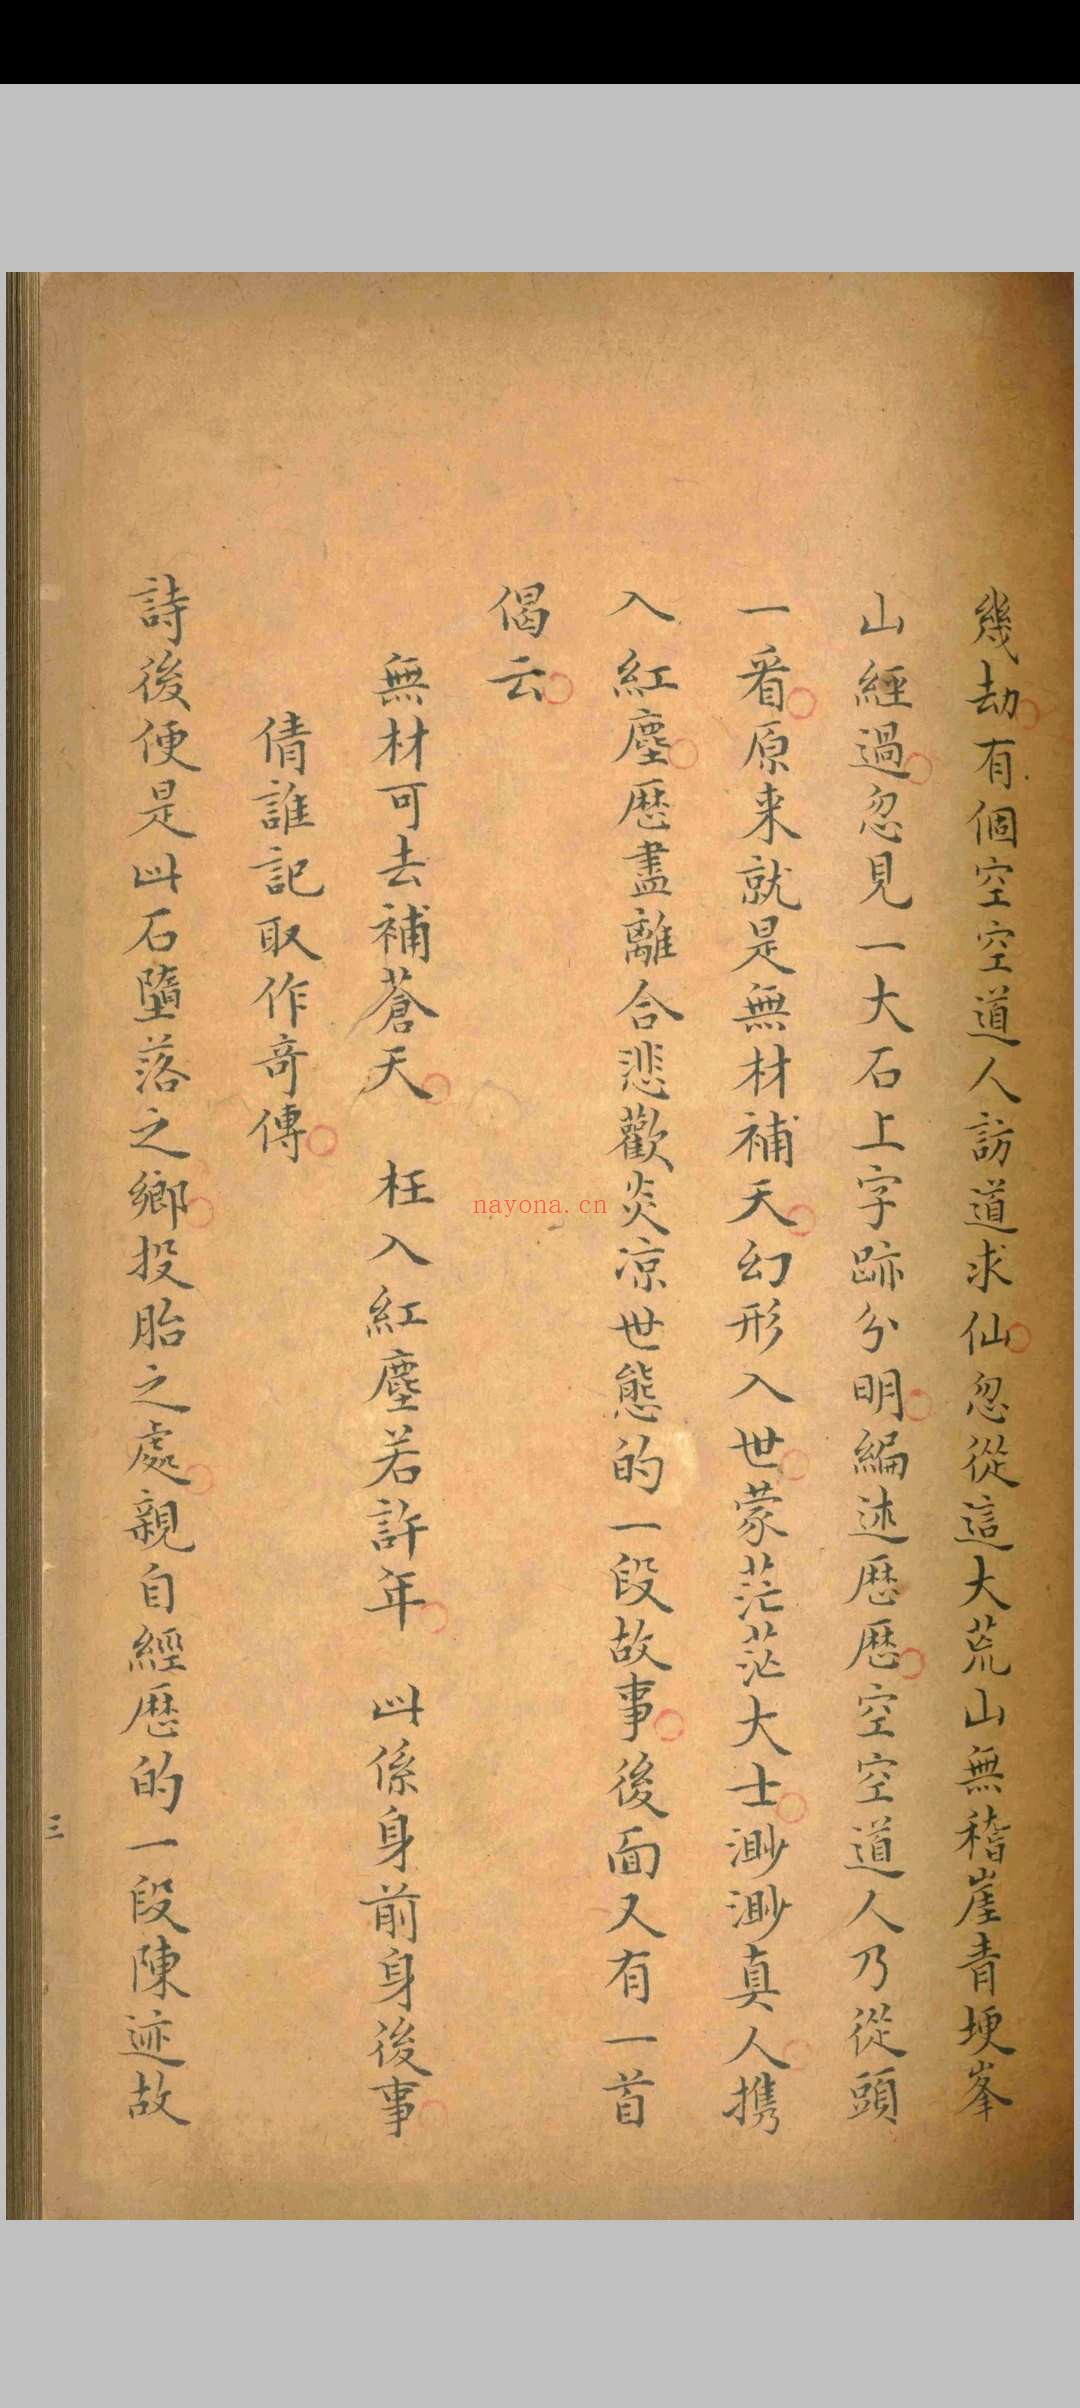 幾劫有個空空道人訪道求仙忽從這大荒山無稽崖青埂峯
山經過忽見一大石上字跡分明編述歴歴空空道人乃從頭
一看原来就是無材補天幻形入世蒙茫茫大士渺渺真人携
入紅塵歴盡離合悲歡炎凉世態的一段故事後面又有一首
偈云
無材可去補蒼天 枉入紅塵若許年 此係身前身後事
倩誰記取作奇傳
詩後便是此石墮落之鄉投胎之處親自經歴的一段陳迹故
三
nayona.cn